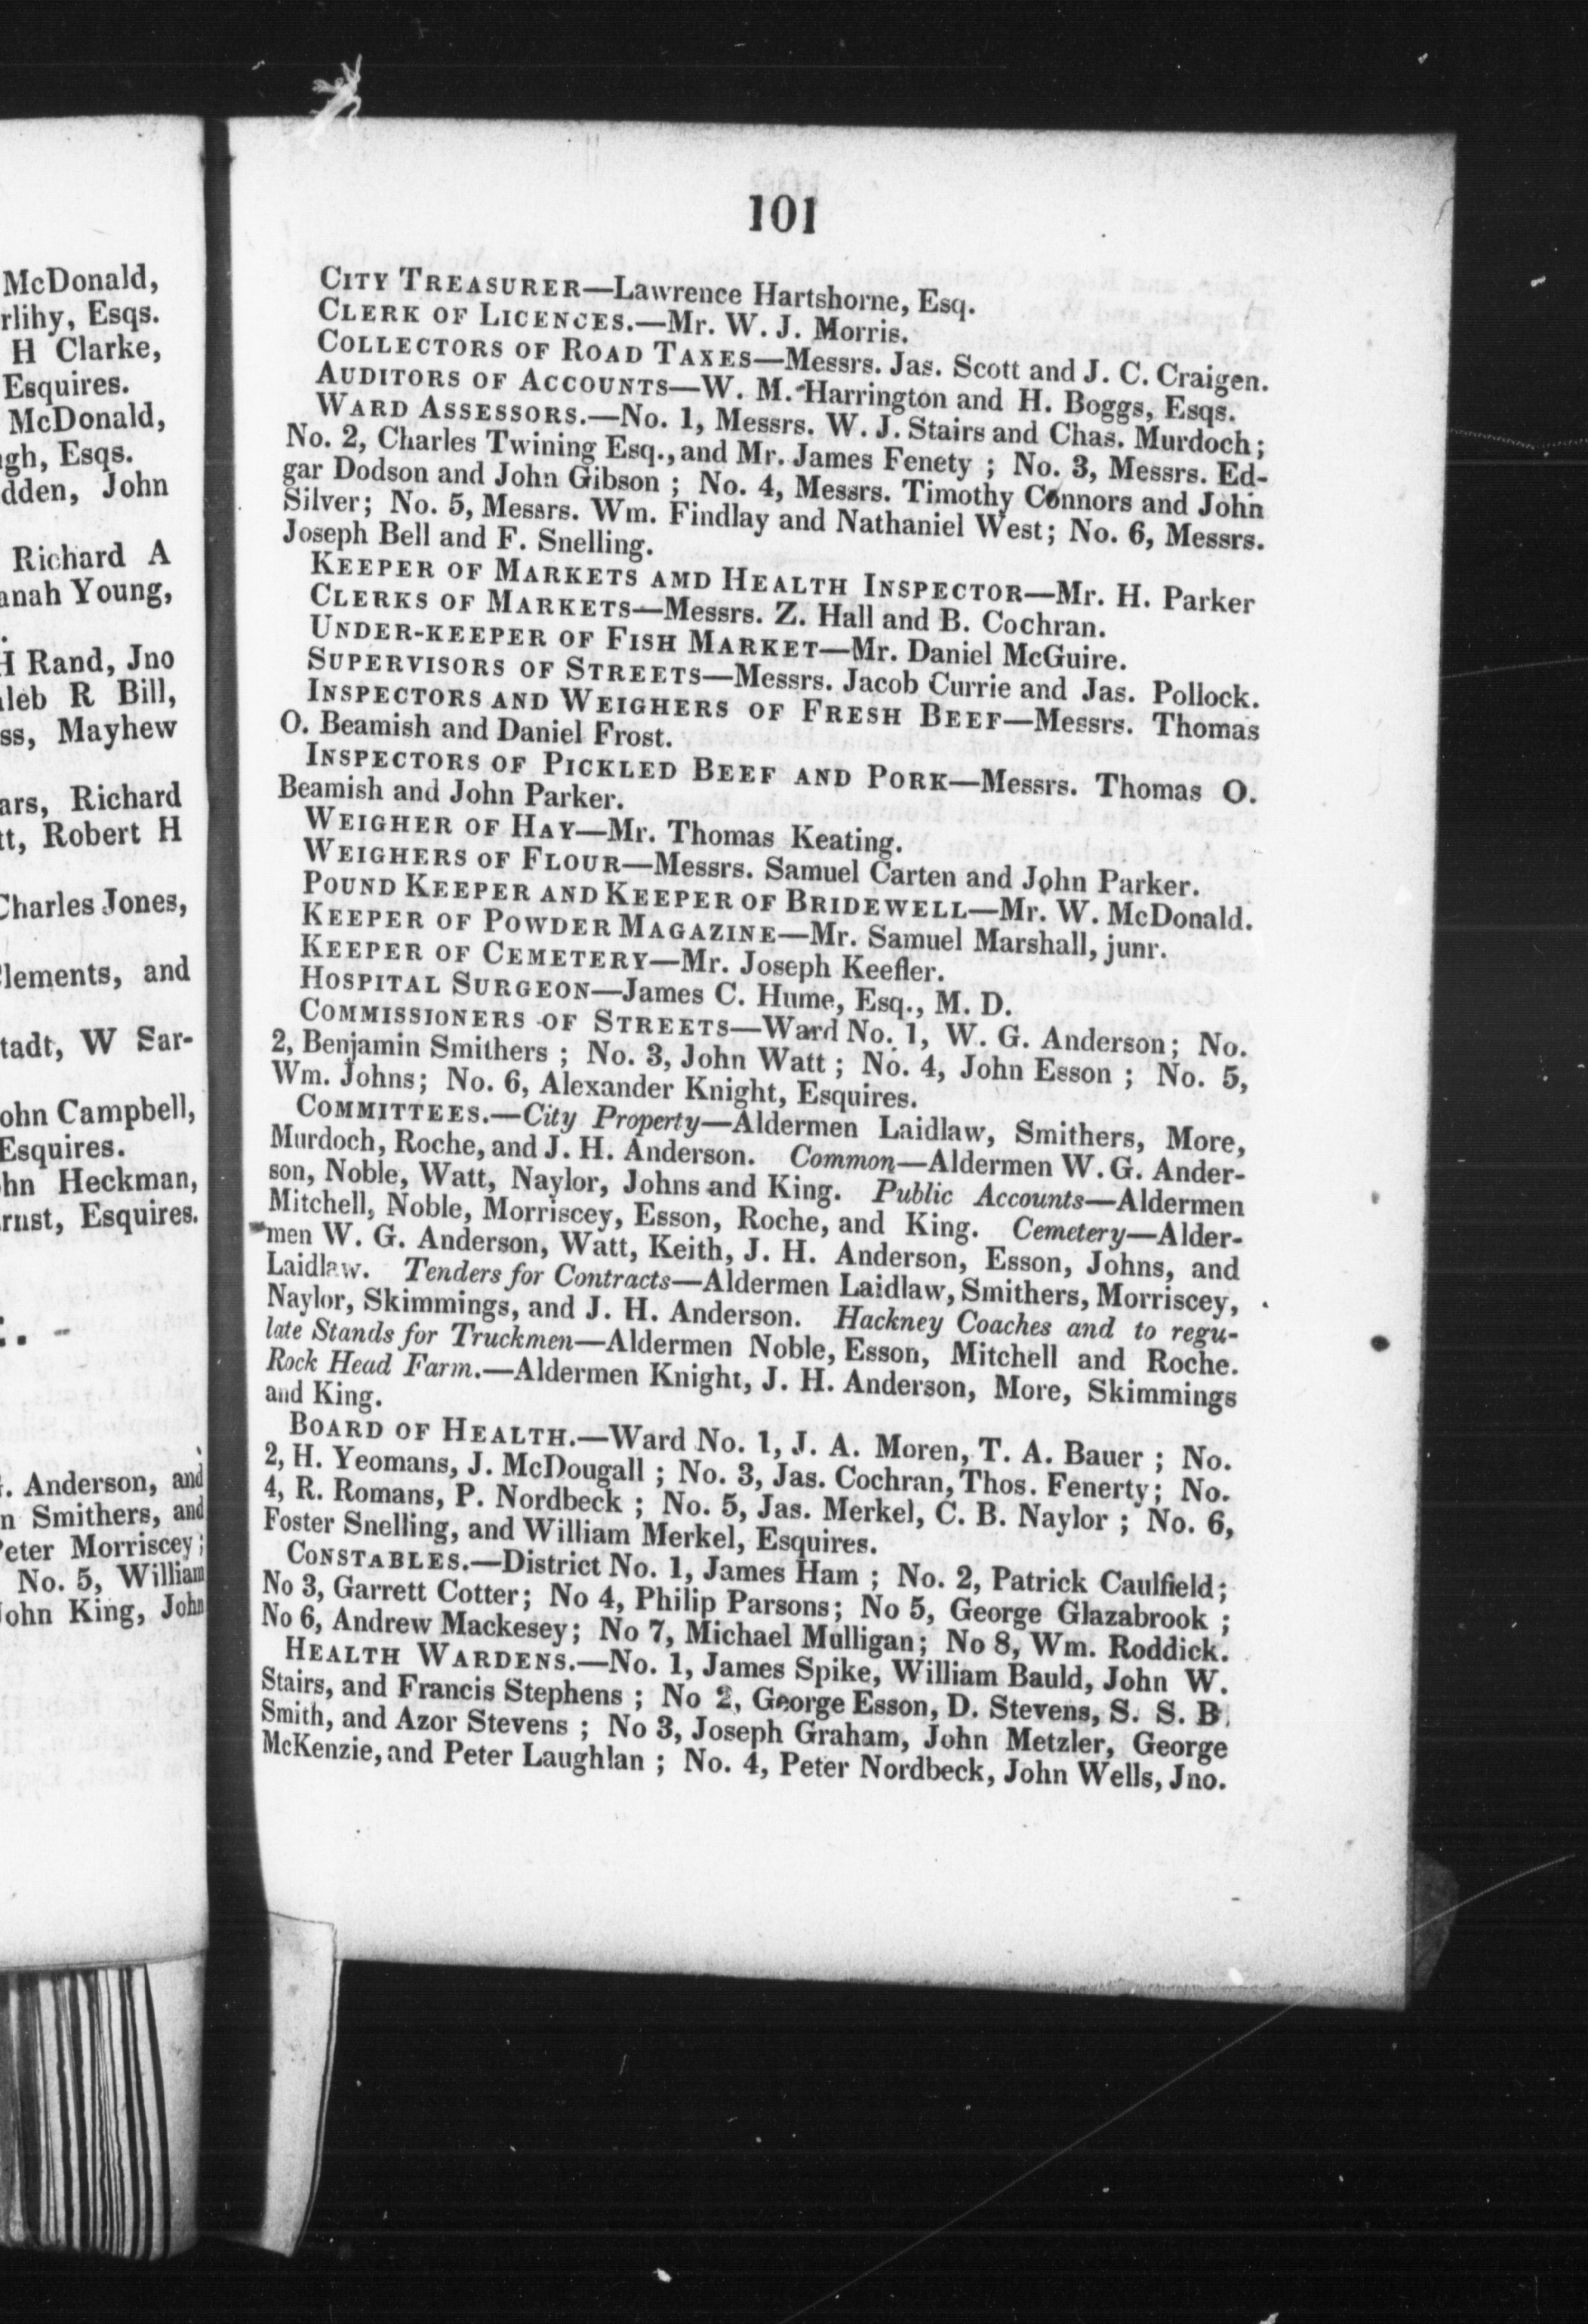 McDonald,
Esqs.
H Clarke,
Esquires.
McDonald,
Esqs.
John
Richard A
Young,
H Rand, Jno
R Bill,
Mayhew
Richard
Robert H
Charles Jones,
and
W Sar-
Campbell,
Esquires.
Heckman,
Esquires.
Anderson, and
Smithers, and
Morriscey;
No. 5, William
John King, John
101
CITY TREASURER—Lawrence Hartshorne, Esq.
CLERK OF LICENCES.—Mr. W. J. Morris.
COLLECTORS OF ROAD TAXES—Messrs. Jas. Scott and J. C. Craigen.
AUDITORS OF ACCOUNTS—W. M. Harrington and H. Boggs, Esqs.
WARD ASSESSORS.—No. 1, Messrs. W. J. Stairs and Chas. Murdoch;
No. 2, Charles Twining Esq., and Mr. James Fenety ; No. 3, Messrs. Ed-
gar Dodson and John Gibson ; No. 4, Messrs. Timothy Connors and John
Silver; No. 5, Messrs. Wm. Findlay and Nathaniel West; No. 6, Messrs.
Joseph Bell and F. Snelling.
KEEPER OF MARKETS AMD HEALTH INSPECTOR—Mr. H. Parker
CLERKS OF MARKETS—Messrs. Z. Hall and B. Cochran.
UNDER-KEEPER OF FISH MARKET—Mr. Daniel McGuire.
SUPERVISORS OF STREETS—Messrs. Jacob Currie and Jas. Pollock.
INSPECTORS AND WEIGHERS OF FRESH BEEF—Messrs. Thomas
O. Beamish and Daniel Frost.
INSPECTORS OF PICKLED BEEF AND PORK—Messrs. Thomas O.
Beamish and John Parker.
WEIGHER OF HAY—Mr. Thomas Keating.
WEIGHERS OF FLOUR—Messrs. Samuel Carten and John Parker.
POUND KEEPER AND KEEPER OF BRIDEWELL—Mr. W. McDonald.
KEEPER OF POWDER MAGAZINE—Mr. Samuel Marshall, junr.
KEEPER OF CEMETERY—Mr. Joseph Keefler.
HOSPITAL SURGEON—James C. Hume, Esq., M. D.
COMMISSIONERS OF STREETS—Ward No. 1, W. G. Anderson; No.
2, Benjamin Smithers ; No. 3, John Watt ; No. 4, John Esson ; No. 5,
Wm. Johns; No. 6, Alexander Knight, Esquires.
COMMITTEES.—City Property—Aldermen Laidlaw, Smithers, More,
Murdoch, Roche, and J. H. Anderson. Common—Aldermen W. G. Ander-
son, Noble, Watt, Naylor, Johns and King. Public Accounts—Aldermen
Mitchell, Noble, Morriscey, Esson, Roche, and King. Cemetery—Alder-
men W. G. Anderson, Watt, Keith, J. H. Anderson, Esson, Johns, and
Laidlaw. Tenders for Contracts—Aldermen Laidlaw, Smithers, Morriscey,
Naylor, Skimmings, and J. H. Anderson. Hackney Coaches and to regu-
late Stands for Truckmen—Aldermen Noble, Esson, Mitchell and Roche.
Rock Head Farm.—Aldermen Knight, J. H. Anderson, More, Skimmings
and King.
BOARD OF HEALTH.—Ward No. 1, J. A. Moren, T. A. Bauer ; No.
2, H. Yeomans, J. McDougall ; No. 3, Jas. Cochran, Thos. Fenerty; No.
4, R. Romans, P. Nordbeck ; No. 5, Jas. Merkel, C. B. Naylor ; No. 6,
Foster Snelling, and William Merkel, Esquires.
CONSTABLES.—District No. 1, James Ham ; No. 2, Patrick Caulfield;
No 3, Garrett Cotter; No 4, Philip Parsons; No 5, George Glazabrook ;
No 6, Andrew Mackesey; No 7, Michael Mulligan; No 8, Wm. Roddick.
HEALTH WARDENS.—No. 1, James Spike, William Bauld, John W.
Stairs, and Francis Stephens ; No 2, George Esson, D. Stevens, S. S. B.
Smith, and Azor Stevens ; No 3, Joseph Graham, John Metzler, George
McKenzie, and Peter Laughlan ; No. 4, Peter Nordbeck, John Wells, Jno.